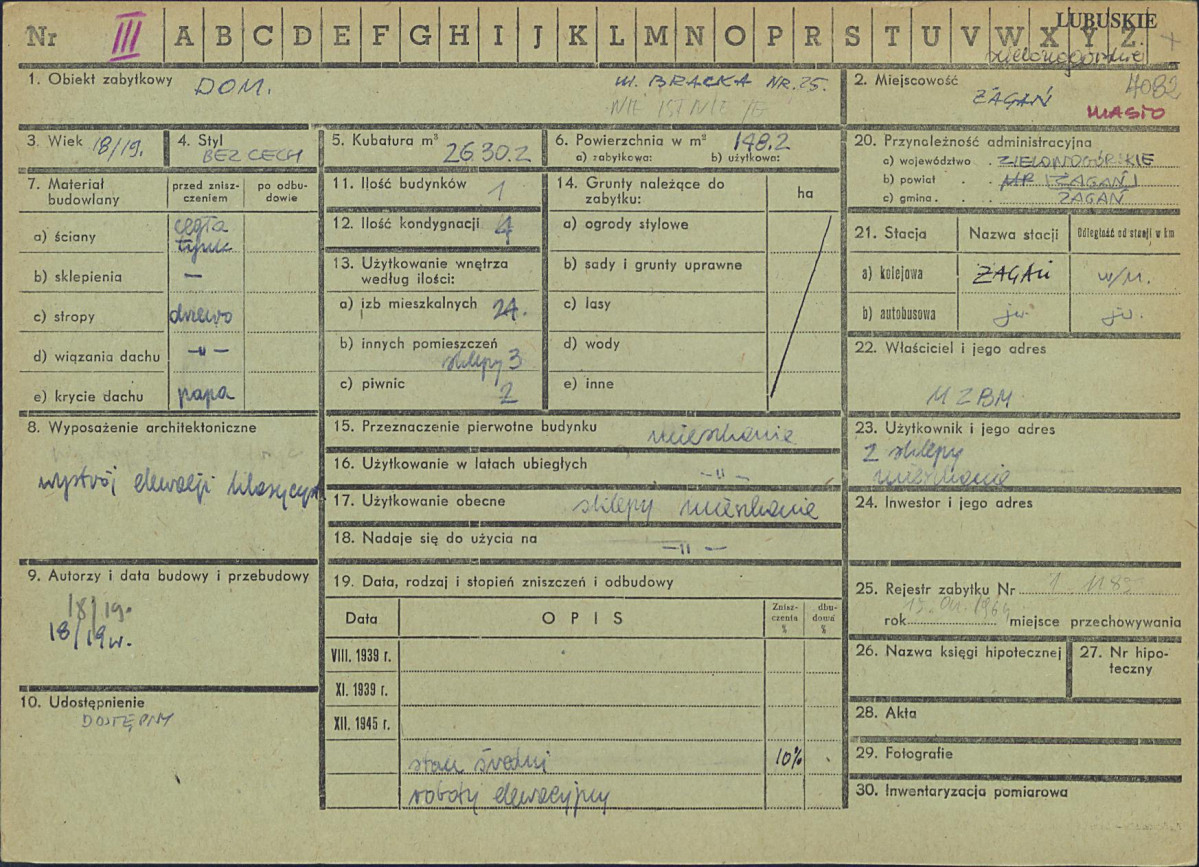 Nr III A B C D E F G H I J K L M N O P R S T U V W X Y Z
LUBUSKIE
zielonogórskie
1. Obiekt zabytkowy DOM. ul. BRACKA NR. 25.
NIE ISTNIEJE
2. Miejscowość 4082
ŻAGAŃ
MIASTO
3. Wiek 18/19.
4. Styl
BEZ CECH
5. Kubatura m³ 2630.2
6. Powierzchnia w m² 148.2
a) zabytkowa: b) użytkowa:
20. Przynależność administracyjna
a) województwo . ZIELONOGÓRSKIE
b) powiat . . MP ŻAGAŃ
c) gmina . . . ŻAGAŃ
7. Materiał budowlany
przed zniszczeniem
po odbudowie
a) ściany cegła
tynk
b) sklepienia —
c) stropy drzewo
d) wiązania dachu —„—
e) krycie dachu papa
11. Ilość budynków 1
12. Ilość kondygnacji 4
13. Użytkowanie wnętrza
według ilości:
a) izb mieszkalnych 24.
b) innych pomieszczeń
sklepy 3
c) piwnic 2
14. Grunty należące do
zabytku: ha
a) ogrody stylowe
b) sady i grunty uprawne
c) lasy
d) wody
e) inne
21. Stacja Nazwa stacji Odległość od stacji w km
a) kolejowa ŻAGAŃ w/m.
b) autobusowa jw. jw.
22. Właściciel i jego adres
MZBM
8. Wyposażenie architektoniczne
wystrój elewacji klasycyst
15. Przeznaczenie pierwotne budynku mieszkanie
16. Użytkowanie w latach ubiegłych —„—
17. Użytkowanie obecne sklepy mieszkanie
18. Nadaje się do użycia na —„—
23. Użytkownik i jego adres
2 sklepy
mieszkanie
24. Inwestor i jego adres
9. Autorzy i data budowy i przebudowy
18/19.
18/19w.
10. Udostępnienie
DOSTĘPNY
19. Data, rodzaj i stopień zniszczeń i odbudowy
Data OPIS Zniszczenia % dbudowa %
VIII. 1939 r.
XI. 1939 r.
XII. 1945 r.
stan średni 10%
roboty elewacyjny
25. Rejestr zabytku Nr
rok 1964 miejsce przechowywania
26. Nazwa księgi hipotecznej
27. Nr hipoteczny
28. Akta
29. Fotografie
30. Inwentaryzacja pomiarowa